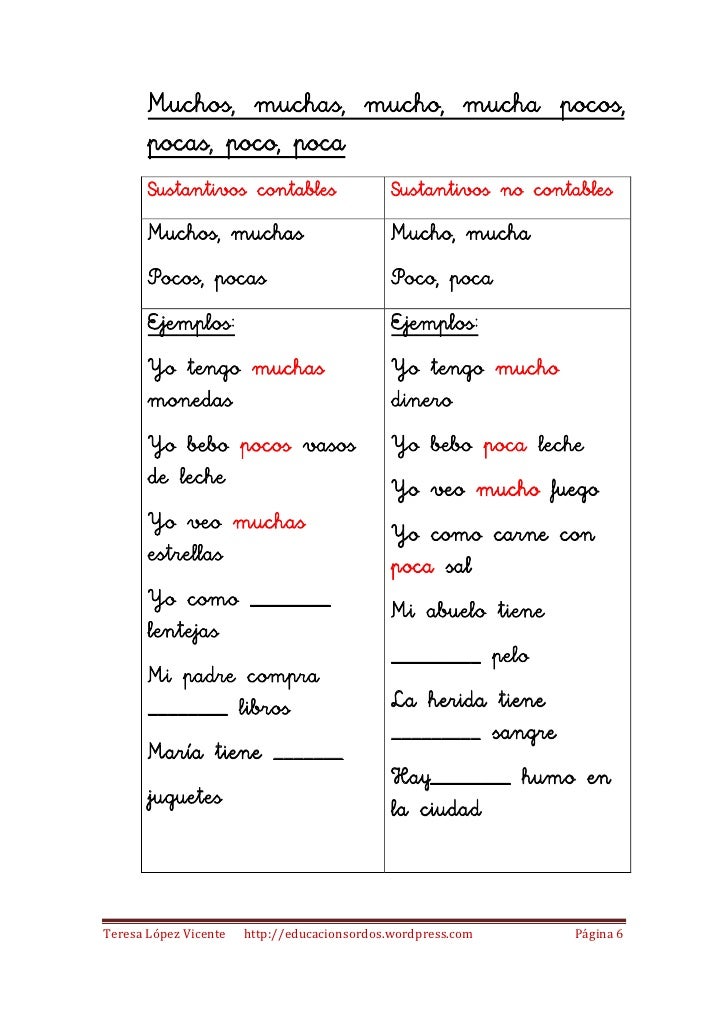 Muchos, muchas, mucho, mucha pocos,
pocas, poco, poca
Sustantivos contables
Sustantivos no contables
Muchos, muchas
Pocos, pocas
Mucho, mucha
Poco, poca
Ejemplos:
Yo tengo muchas
monedas
Yo bebo pocos vasos
de leche
Yo veo muchas
estrellas
Yo como ________
lentejas
Mi padre compra
________ libros
María tiene _______
juguetes
Ejemplos:
Yo tengo mucho
dinero
Yo bebo poca leche
Yo veo mucho fuego
Yo como carne con
poca sal
Mi abuelo tiene
_________ pelo
La herida tiene
_________ sangre
Hay________ humo en
la ciudad
Teresa López Vicente http://educacionsordos.wordpress.com Página 6